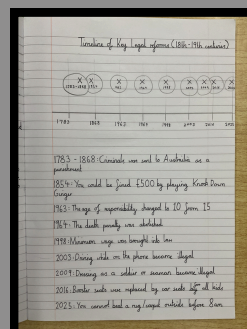 Timeline of Key Legal reforms (18th-19th centuries)
X X X X X X X X X
1783-1868
1783 1868 1963 1964 1998
1783 - 1868: Criminals was sent to Australia as a
punishment
1854: You could be fined £500 by playing Knock Down
Ginger
1963: The age of responsibility changed to 10 from 15
1964: The death penalty was abolished
1998: Minimum wage was brought into law
2003: Driving while on the phone became illegal
2009: Dressing as a soldier or seaman became illegal
2016: Booster seats were replaced by car seats for all kids
2023: You cannot beat a rug/carpet outside before 8am